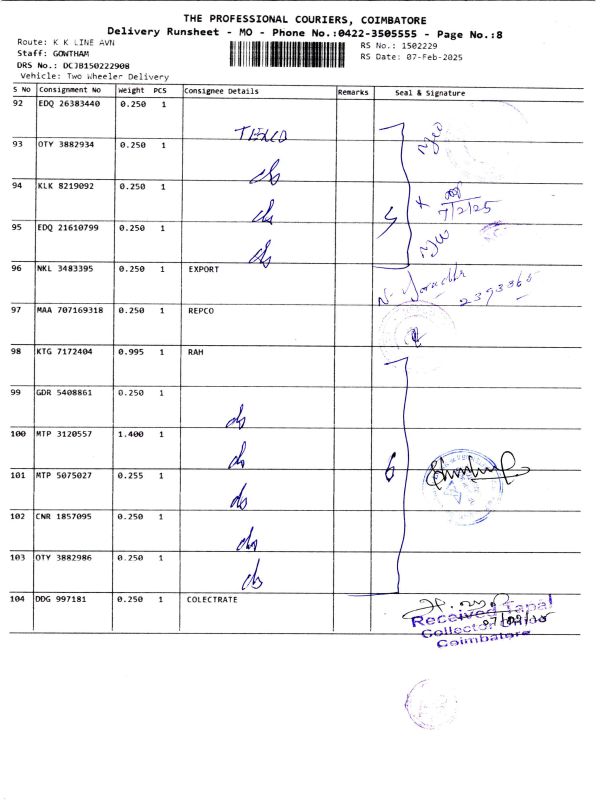 THE PROFESSIONAL COURIERS, COIMBATORE
Delivery Runsheet - MO - Phone No.:0422-3505555 - Page No.:8
Route: K K LINE AVN
RS No.: 1502229
Staff: GOWTHAM
RS Date: 07-Feb-2025
DRS No.: DCJB150222908
Vehicle: Two Wheeler Delivery
S No Consignment No Weight PCS Consignee Details Remarks Seal & Signature
92 EDQ 26383440 0.250 1
93 OTY 3882934 0.250 1
94 KLK 8219092 0.250 1
7/2/25
95 EDQ 21610799 0.250 1
5
96 NKL 3483395 0.250 1 EXPORT
97 MAA 707169318 0.250 1 REPCO
98 KTG 7172404 0.995 1 RAH
99 GDR 5408861 0.250 1
100 MTP 3120557 1.400 1
101 MTP 5075027 0.255 1
6
102 CNR 1857095 0.250 1
103 OTY 3882986 0.250 1
104 DDG 997181 0.250 1 COLECTRATE
Received Tapal
Collector Office
Coimbatore